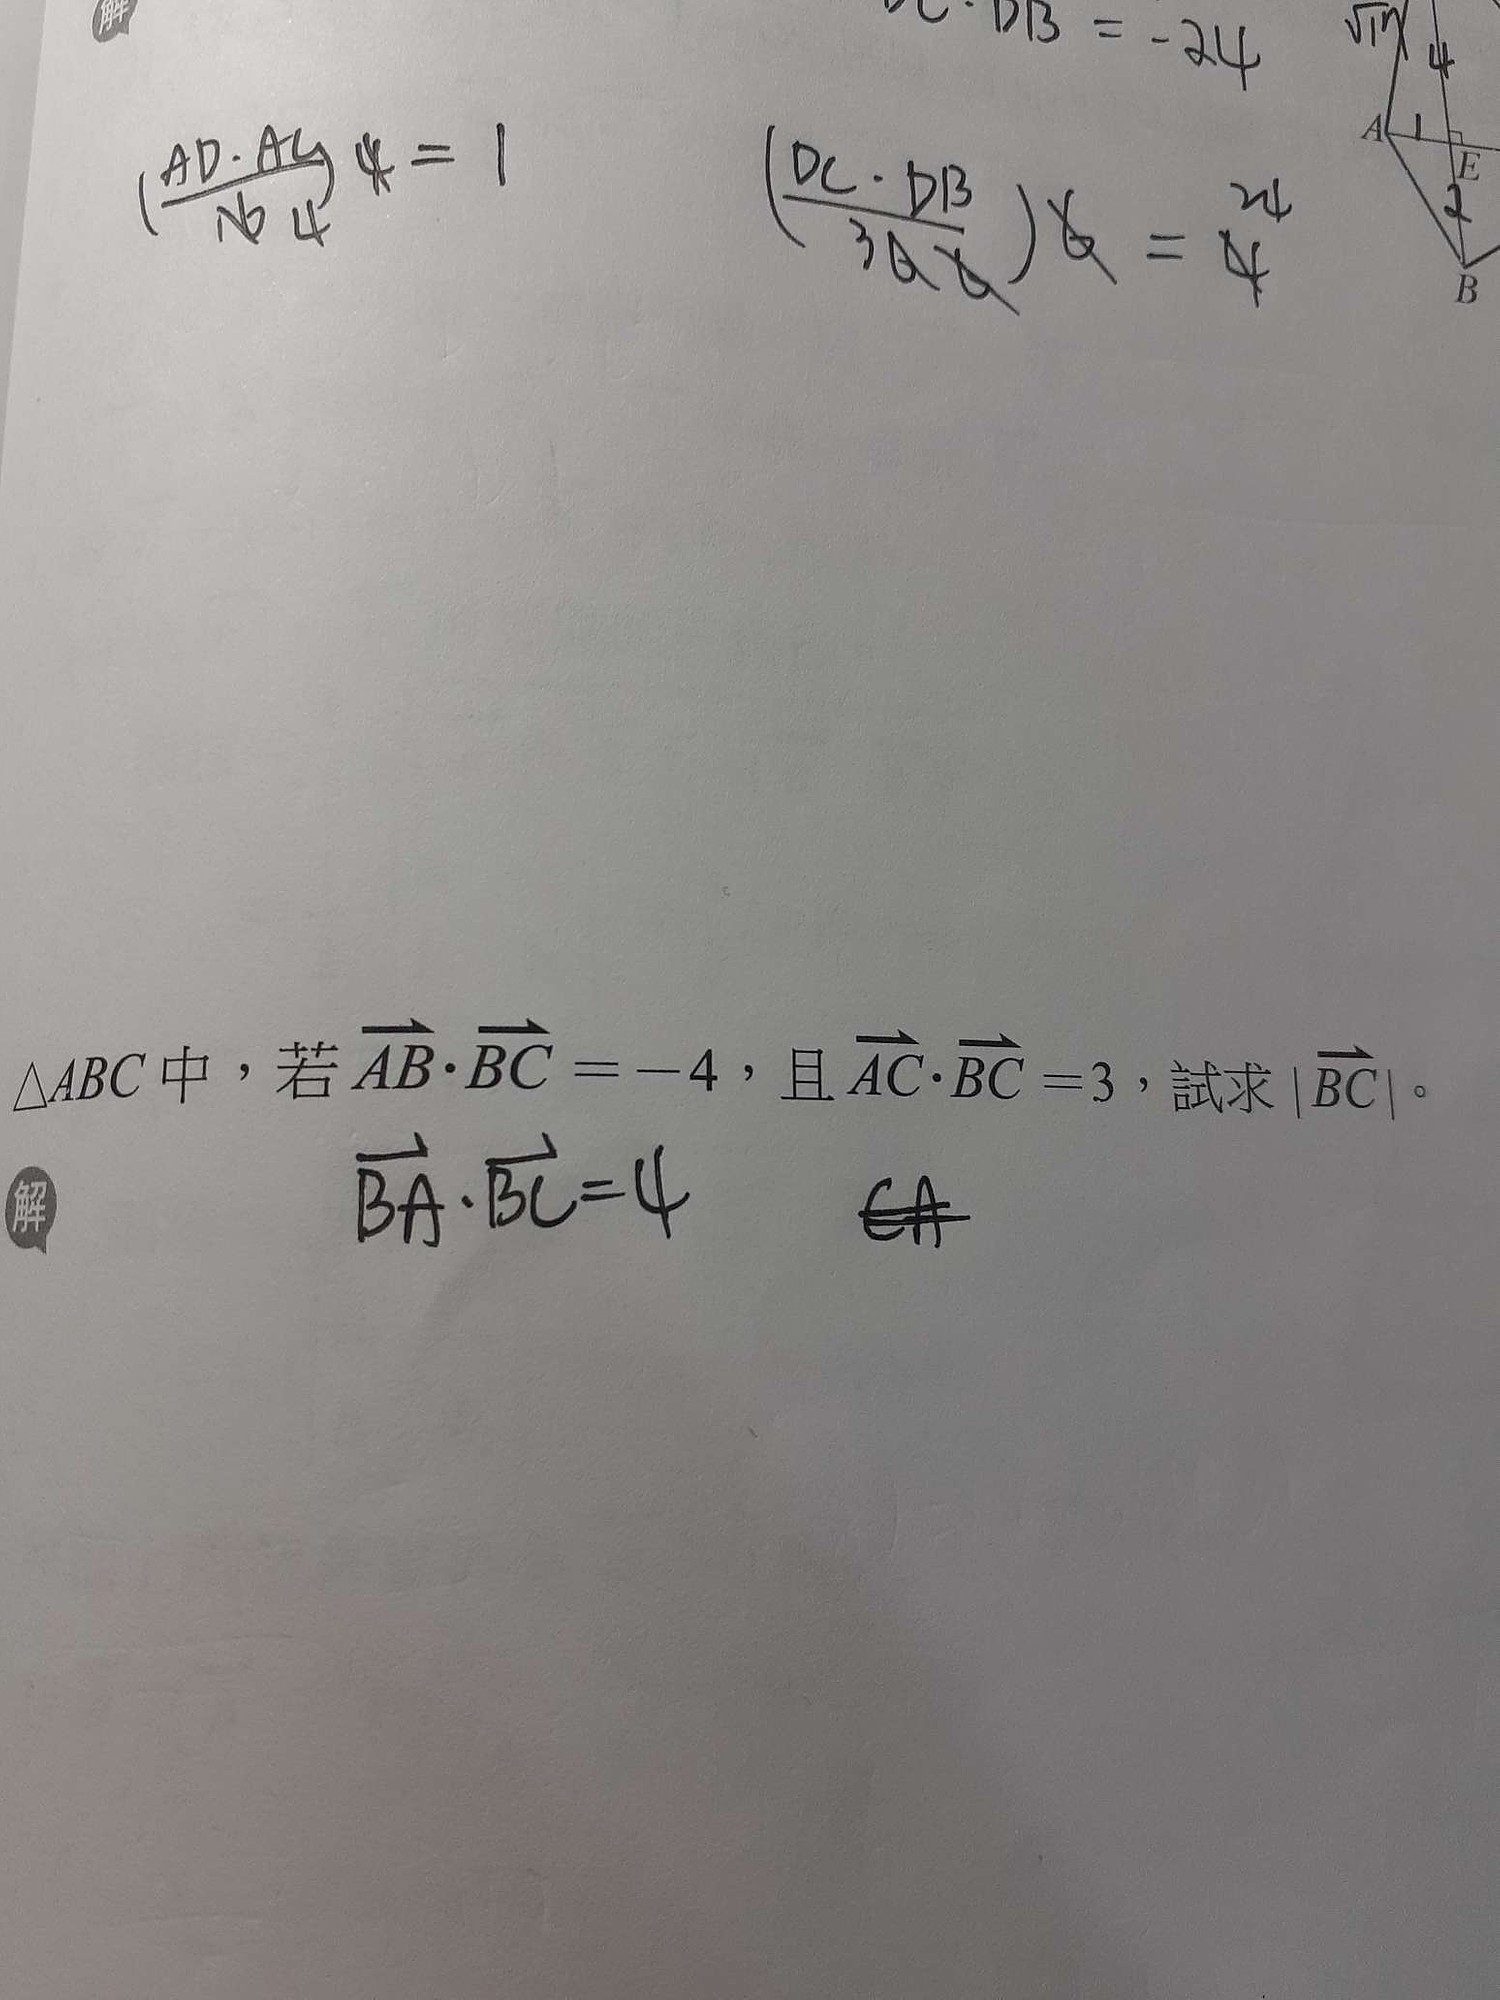 解
DC · DB = -24
√17
4
A 1
E
2
B
(AD · AC / 16 4) 4 = 1
(DC · DB / 36 6) 6 = 4 24
△ABC 中，若 $\overrightarrow{AB}$ · $\overrightarrow{BC}$ = −4，且 $\overrightarrow{AC}$ · $\overrightarrow{BC}$ = 3，試求 | $\overrightarrow{BC}$ |。
解
$\overrightarrow{BA}$ · $\overrightarrow{BC}$ = 4
CA